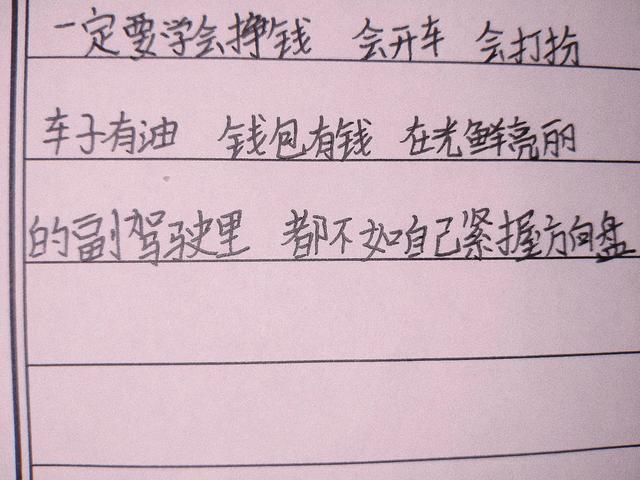 一定要学会挣钱 会开车 会打扮
车子有油 钱包有钱 在光鲜亮丽
的副驾驶里 都不如自己紧握方向盘